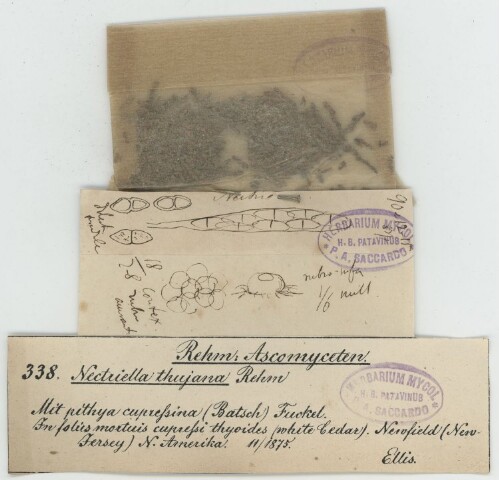 HERBARIUM MYCOL.
H. B. PATAVINUS
P. A. SACCARDO
rubro-rufa
1/6 mill.
18
Cortex
Rehm: Ascomyceten.
338. Nectriella thujana Rehm
HERBARIUM MYCOL.
H. B. PATAVINUS
P. A. SACCARDO
Mit pithya cupressina (Batsch) Fuckel.
In foliis mortuis cupressi thyoides (white Cedar). Newfield (New-
Jersey) N. Amerika. 11/1875.
Ellis.